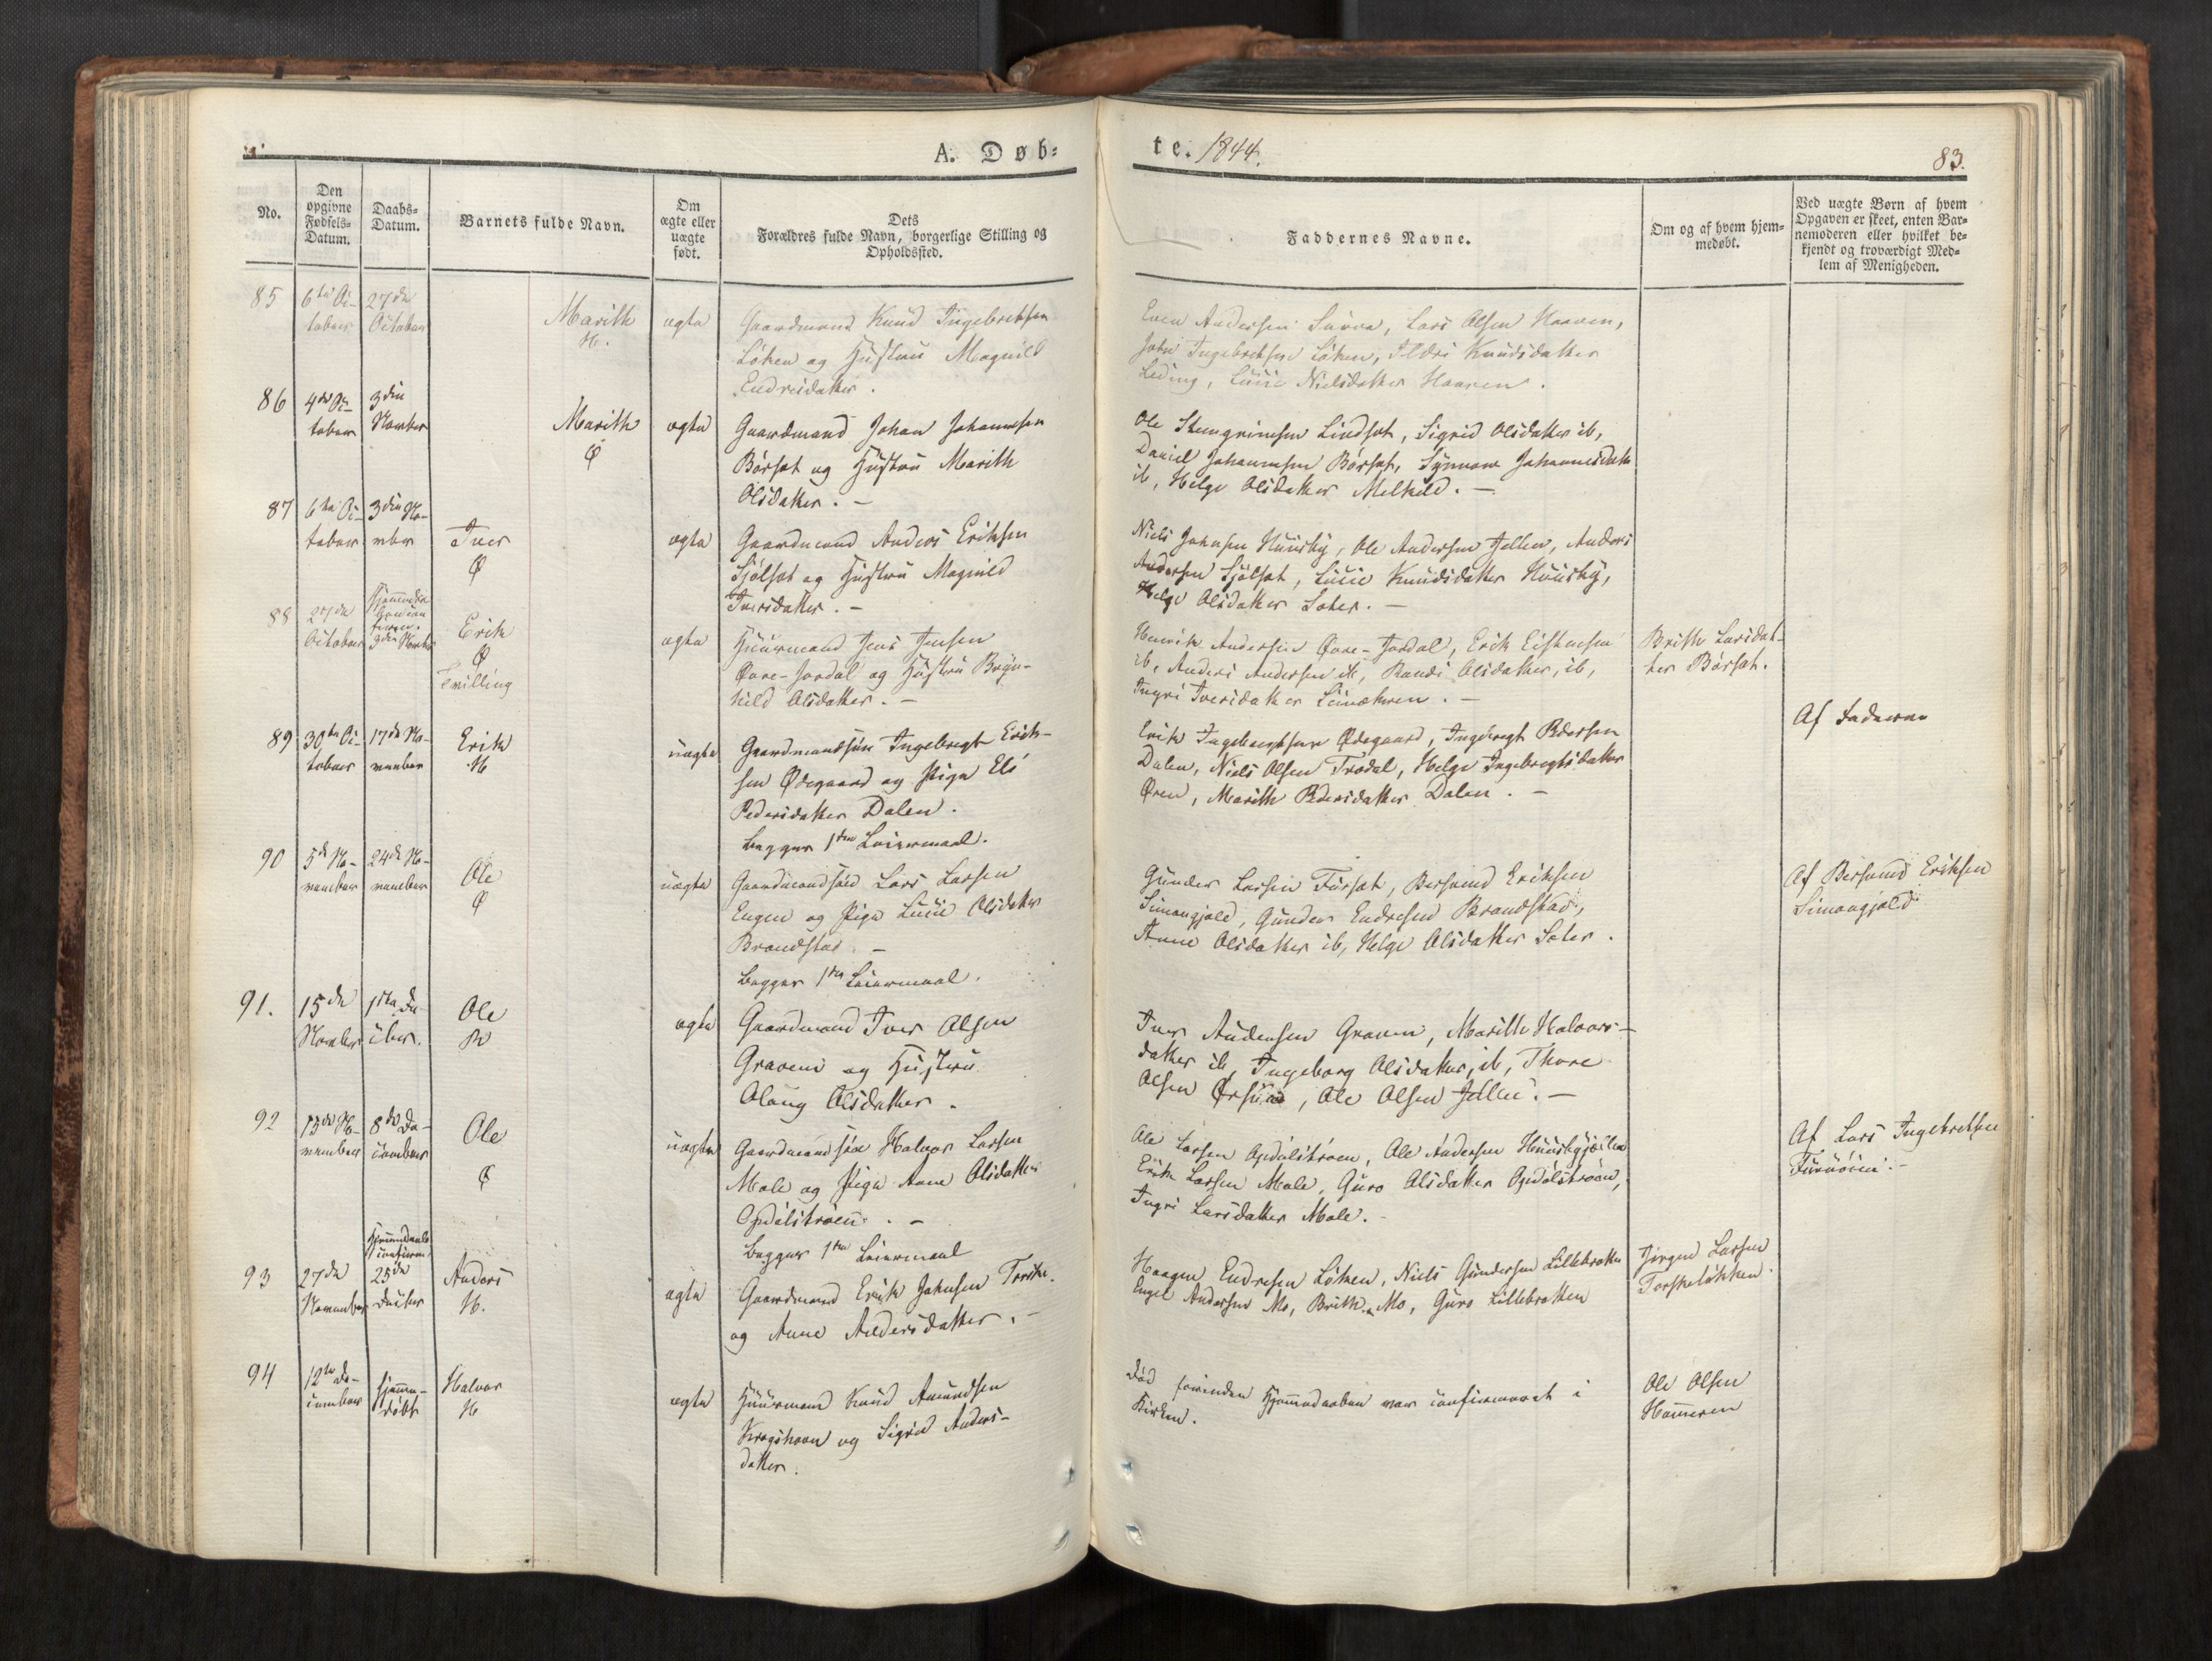 A. Døb=
te. 1844.
83.
No.
Den opgivne Fødsels= Datum.
Daabs= Datum.
Barnets fulde Navn.
Om ægte eller uægte født.
Dets
Forældres fulde Navn, borgerlige Stilling og
Opholdssted.
Faddernes Navne.
Om og af hvem hjem=
medøbt.
Ved uægte Børn af hvem
Opgaven er skeet, enten Bar=
nemoderen eller hvilket be=
kjendt og troværdigt Med=
lem af Menigheden.
85 6te Oc- 27de Marith ægte Gaardmand Knud Ingebretsen
tober October H. Løken og Hustru Magnild
Endresdatter.
Even Andersen, Lars Olsen Haaven,
John Ingebretsen Løken, Ildri Knudsdatter
Leding, Lucie Nielsdatter Haaven.
86 4de Oc- 3die Marith ægte Gaardmand Johan Johannesen
tober Novbr Ø Børset og Hustru Marith
Olsdatter. -
Ole Steengrimsen Lindset, Sigrid Olsdatter ib,
Daniel Johannesen Børset, Synnove Johannesdatr
ib, Helge Olsdatter Melkild. -
87 6te Oc- 3die No- Iver ægte Gaardmand Anders Eriksen
tober vbr Ø Sjølset og Hustru Magnild
Iversdatter. -
Niels Johnsen Huusby, Ole Andersen Jellen, Anders
Andersen Sjølset, Lucie Knudsdatter Huusby,
Helge Olsdatter Soter. -
88 27de Hjemmedøbt Erik ægte Huusmand Jens Jensen
October 3die Novbr Ø Øvre-Jordal og Hustru Bryn-
Tvilling hild Olsdatter. -
Henrik Andersen Øvre-Jordal, Erik Eistensen
ib, Anders Andersen ib, Randi Olsdatter, ib,
Ingri Iversdatter. -
Brith Larsdat-
ter Børset.
89 30te Oc- 17de No- Erik uægte Gaardmandsøn Ingebregt Erik-
tober vember H sen Ødegaard og Pige Eli
Pedersdatter Dalen.
Begges 1ste Leiermaal.
Erik Ingebregtsen Ødegaard, Ingebregt Pedersen
Dalen, Niels Olsen Trødal, Helge Ingebregtsdatter
Øren, Marith Pedersdatter Dalen. -
Af Faderen
90 5te No- 24de No- Ole uægte Gaardmandsøn Lars Larsen
vember vember Ø Engen og Pige Lucie Olsdatter
Brandstad. -
Begges 1ste Leiermaal.
Gunder Larsen Furset, Bersvend Eriksen
Simongjeld, Gunder Endresen Brandstad,
Anne Olsdatter ib, Helge Olsdatter Soter.
Af Bersvend Eriksen
Simongjeld.
91. 15de 1ste De- Ole ægte Gaardmand Iver Olsen
Novber cbr. Graven og Hustru
Olaug Olsdatter.
Iver Andersen Graven, Marith Halvors-
datter ib, Ingeborg Olsdatter, ib, Thore
Olsen, Ole Olsen Jellen. -
92 13de No- 8de De- Ole uægte Gaardmandsøn Halvor Larsen
vember cember Ø Mole og Pige Anne Olsdatter
Opdølstrøen. -
Begges 1ste Leiermaal
Ole Larsen Opdølstrøen, Ole Andersen
Erik Larsen Mole, Guro Olsdatter Opdølstrøen,
Ingri Larsdatter Mole.
Af Lars Ingebretsen
93 27de 25de Anders ægte Gaardmand Erik Johnsen
November H. og Anne Andersdatter. -
Haagen Endresen Løken, Niels Gundersen Lillebrotten
Engel Andersen Mo, Brith Mo, Guro Lillebrotten
Jørgen Larsen
Torskeløkken.
94 12te De- Hjemme- Halvor ægte Huusmand Knud Amundsen
cember døbt H Krogshavn og Sigrid Anders-
datter.
Død forinden Hjemmedaaben var confirmeret i
Kirken.
Ole Olsen
Hammeren